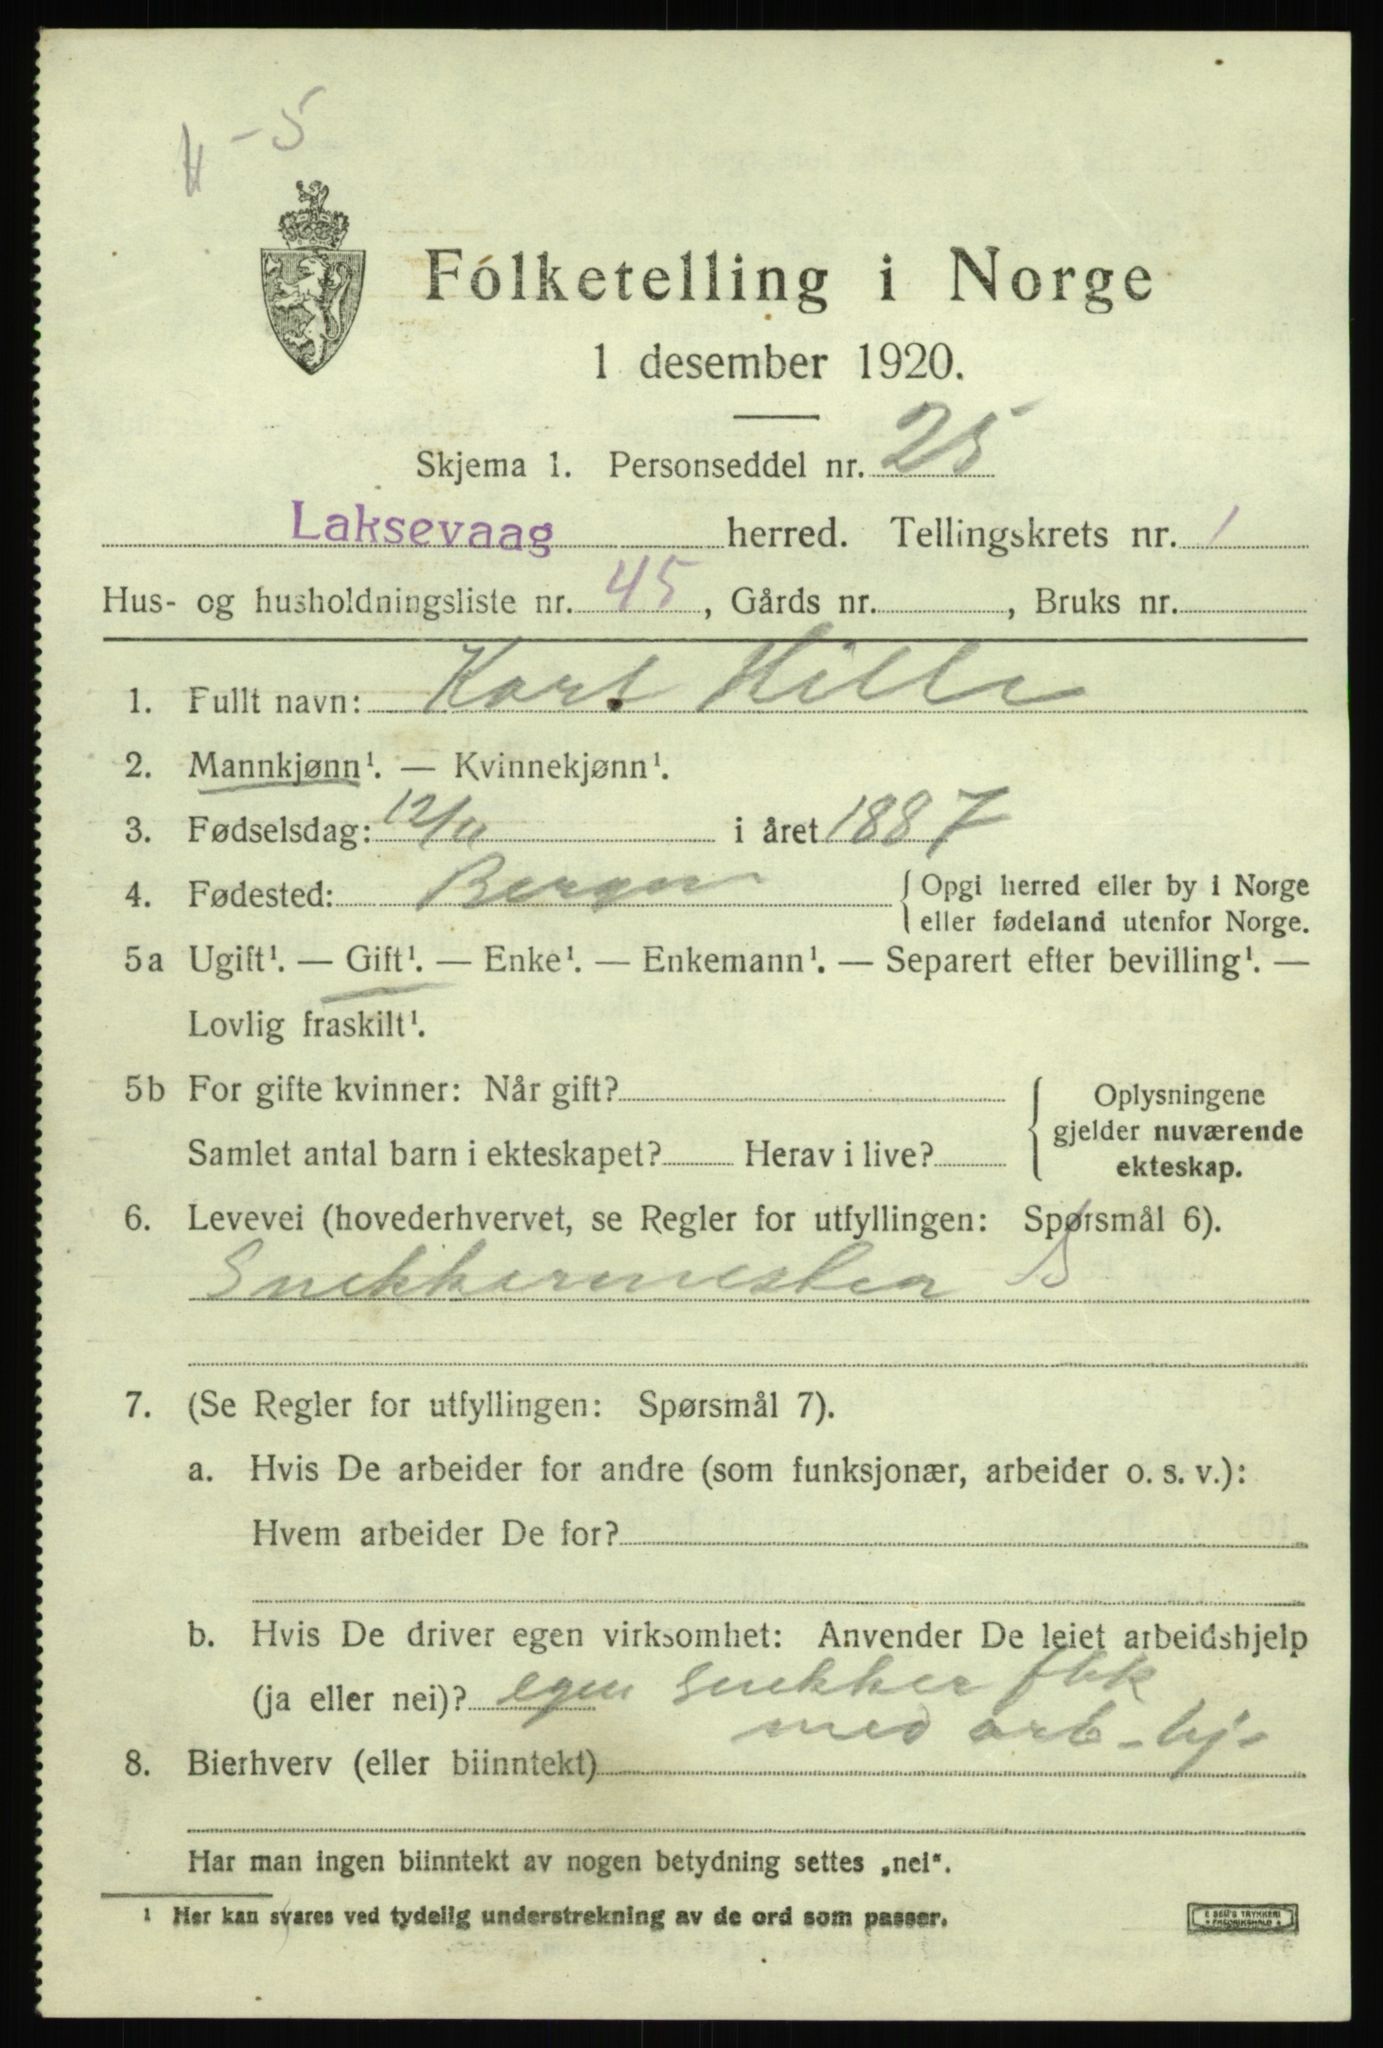 H - 5
Folketelling i Norge
1 desember 1920.
Skjema 1. Personseddel nr. 25
Laksevaag herred. Tellingskrets nr. 1
Hus- og husholdningsliste nr. 45, Gårds nr. , Bruks nr.
1. Fullt navn: Karl Hille
2. Mannkjønn¹. — Kvinnekjønn¹.
3. Fødselsdag: 12/11 i året 1887
4. Fødested: Bergen {Opgi herred eller by i Norge
eller fødeland utenfor Norge.
5a Ugift¹. — Gift¹. — Enke¹. — Enkemann¹. — Separert efter bevilling¹. —
Lovlig fraskilt¹.
5b For gifte kvinner: Når gift?
Samlet antal barn i ekteskapet? Herav i live?
Oplysningene
gjelder nuværende
ekteskap.
6. Levevei (hovederhvervet, se Regler for utfyllingen: Spørsmål 6).
Snekkermester S
7. (Se Regler for utfyllingen: Spørsmål 7).
a. Hvis De arbeider for andre (som funksjonær, arbeider o. s. v.):
Hvem arbeider De for?
b. Hvis De driver egen virksomhet: Anvender De leiet arbeidshjelp
(ja eller nei)? egen snekker fbk
med arb-hj-
8. Bierhverv (eller biinntekt)
Har man ingen biinntekt av nogen betydning settes „nei“.
¹ Her kan svares ved tydelig understrekning av de ord som passer.
E SEM'S TRYKKERI
FREDRIKSHALD